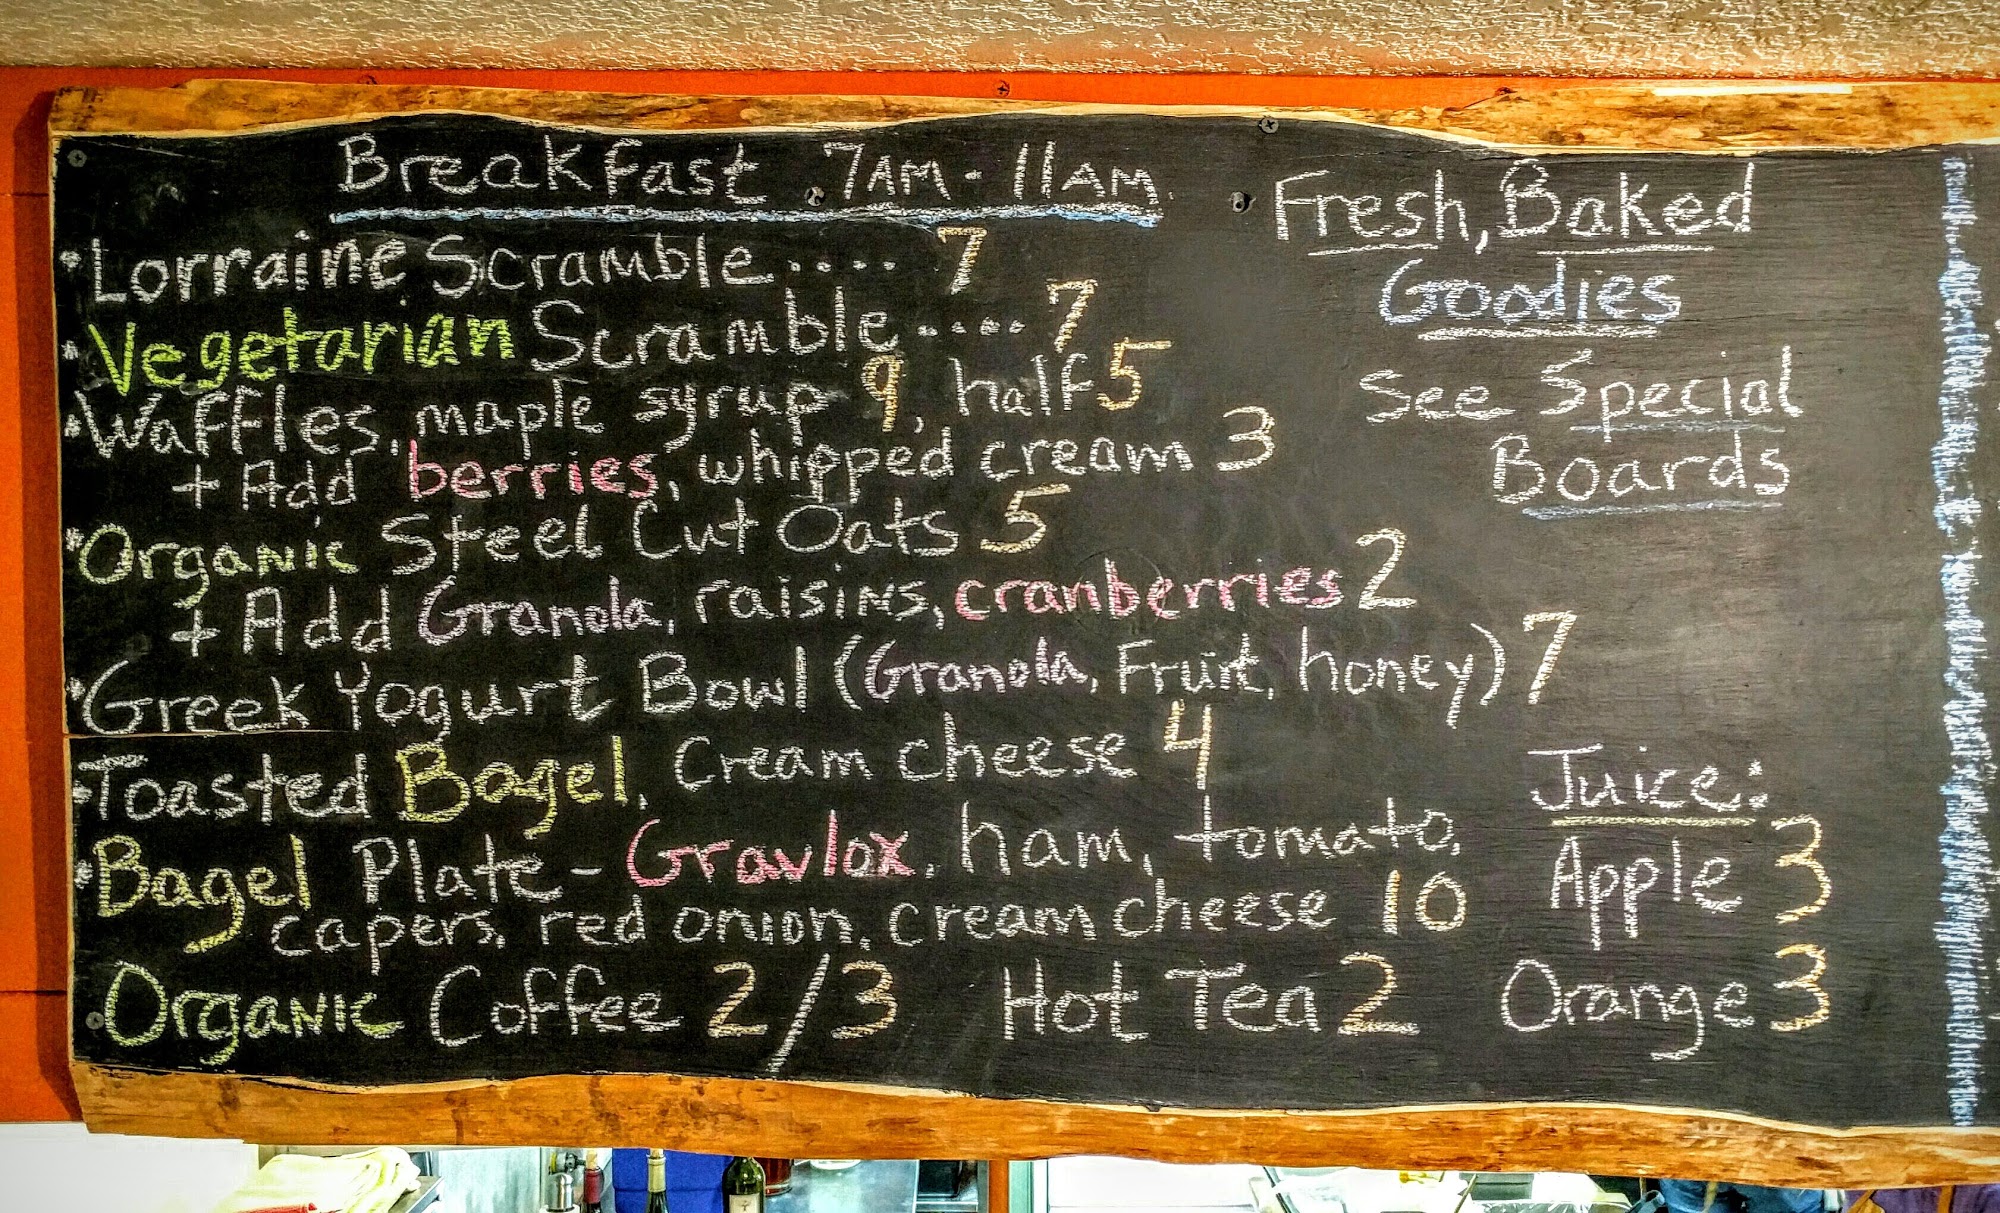 Breakfast 7AM - 11AM
• Lorraine Scramble .... 7
• Vegetarian Scramble .... 7
• Waffles, maple syrup 9, half 5
+ Add berries, whipped cream 3
• Organic Steel Cut Oats 5
+ Add Granola, raisins, cranberries 2
• Greek Yogurt Bowl (Granola, Fruit, honey) 7
• Toasted Bagel, Cream cheese 4
• Bagel Plate - Gravlox, ham, tomato,
capers, red onion, cream cheese 10
Organic Coffee 2/3 Hot Tea 2
Fresh, Baked
Goodies
See Special
Boards
Juice:
Apple 3
Orange 3